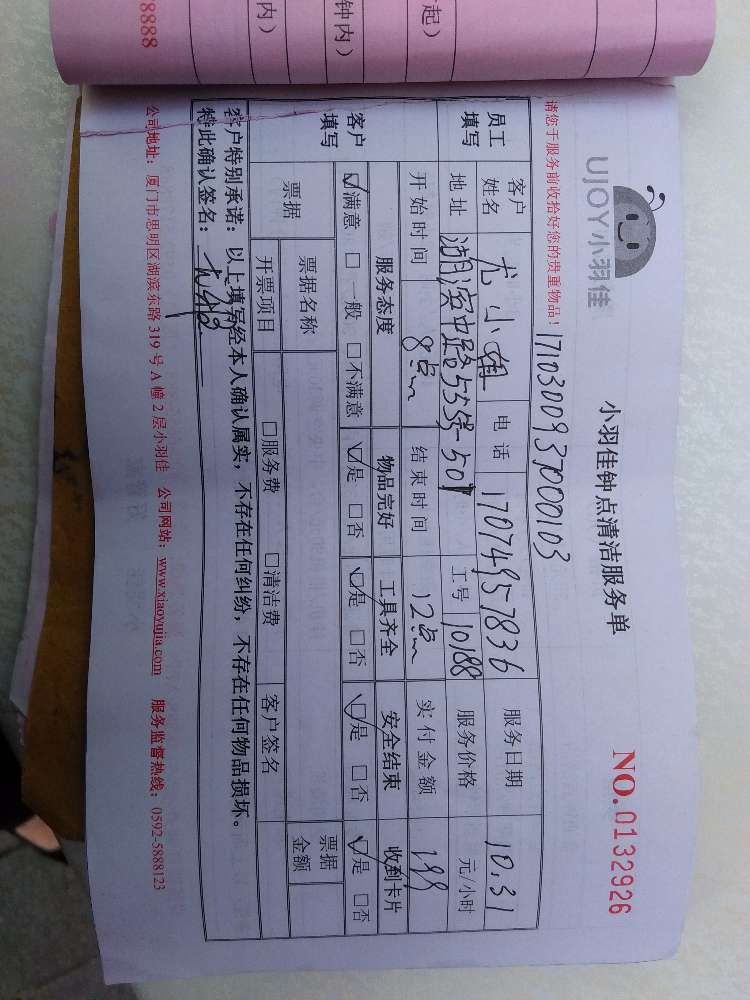 起)
钟内)
内)
8888
UJOY小羽佳
小羽佳钟点清洁服务单
NO.0132926
请您于服务前收拾好您的贵重物品！
1710300937000103
员工填写 客户姓名 尤小姐 电话 17074957836 服务日期 10.31
地址 湖滨中路55号-507 工号 10188 服务价格 元/小时
开始时间 8点 结束时间 12点 实付金额 199
客户填写 服务态度 物品完好 工具齐全 安全结束 收到卡片
☑满意 □一般 □不满意 ☑是 □否 ☑是 □否 ☑是 □否 ☑是 □否
票据 票据名称 票据金额
开票项目 □服务费 □清洁费 客户签名
客户特别承诺：以上填写经本人确认属实，不存在任何纠纷，不存在任何物品损坏。
特此确认签名：
公司地址：厦门市思明区湖滨东路319号A幢2层小羽佳 公司网站：www.xiaoyujia.com 服务监督热线：0592-5888123